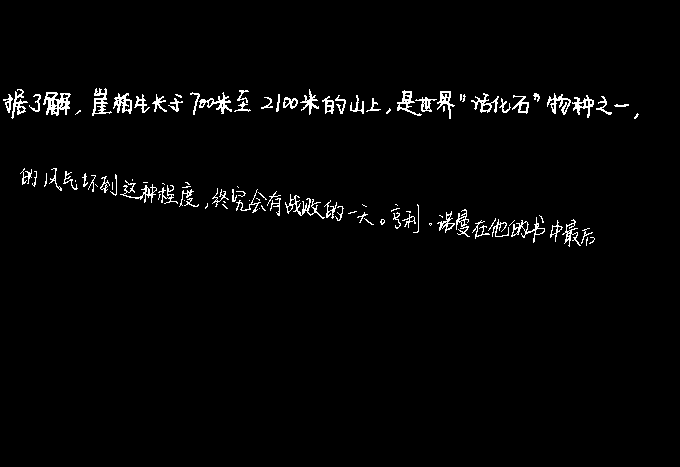 据了解，崖柏生长于700米至2100米的山上，是世界“活化石”物种之一，
的风气坏到这种程度，终究会有战败的一天。亨利·诺曼在他的书中最后